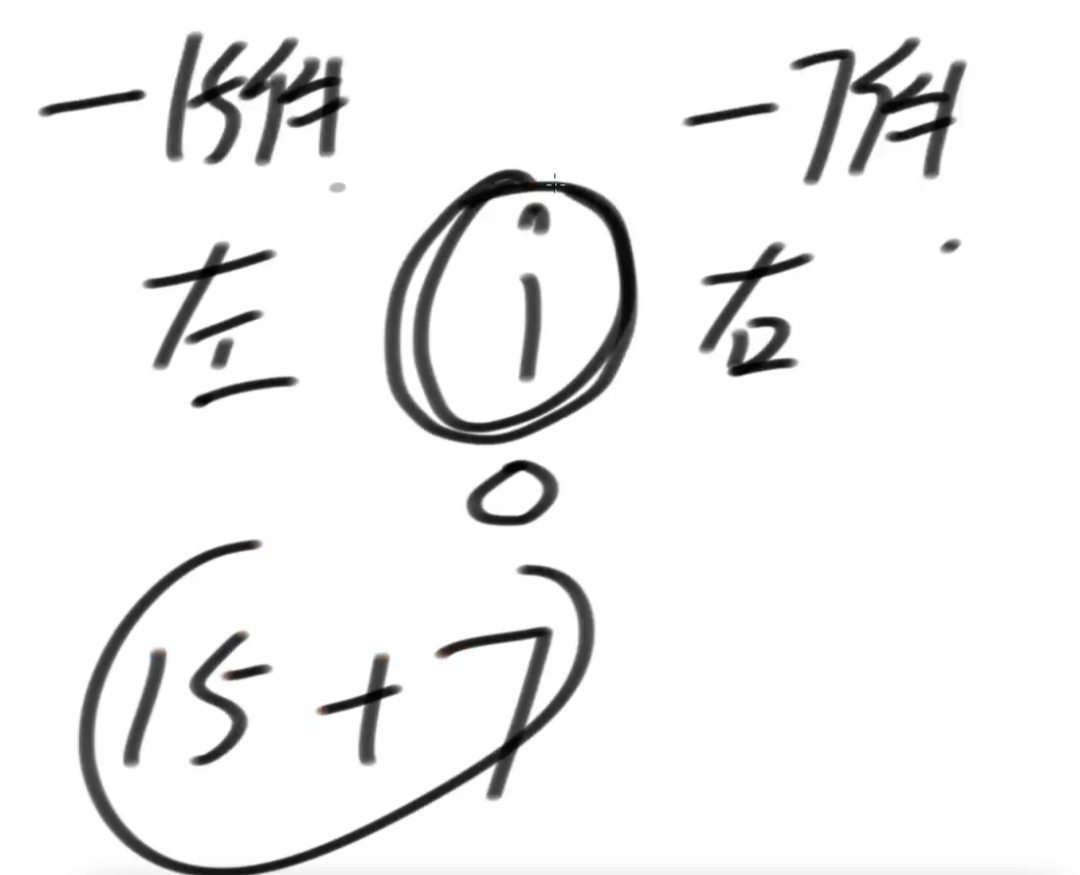 -15件 -7件
左 i 右
0
15+7